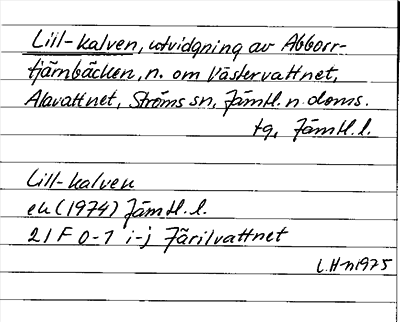 Lill-kalven, utvidgning av Abborr-
tjärnbäcken, n. om Västervattnet,
Alavattnet, Ströms sn, Jämtl. n. doms.
tg, Jämtl. l.
Lill-kalven
ek (1974) Jämtl. l.
21 F 0-1 i-j Järilvattnet
L.H-n 1975